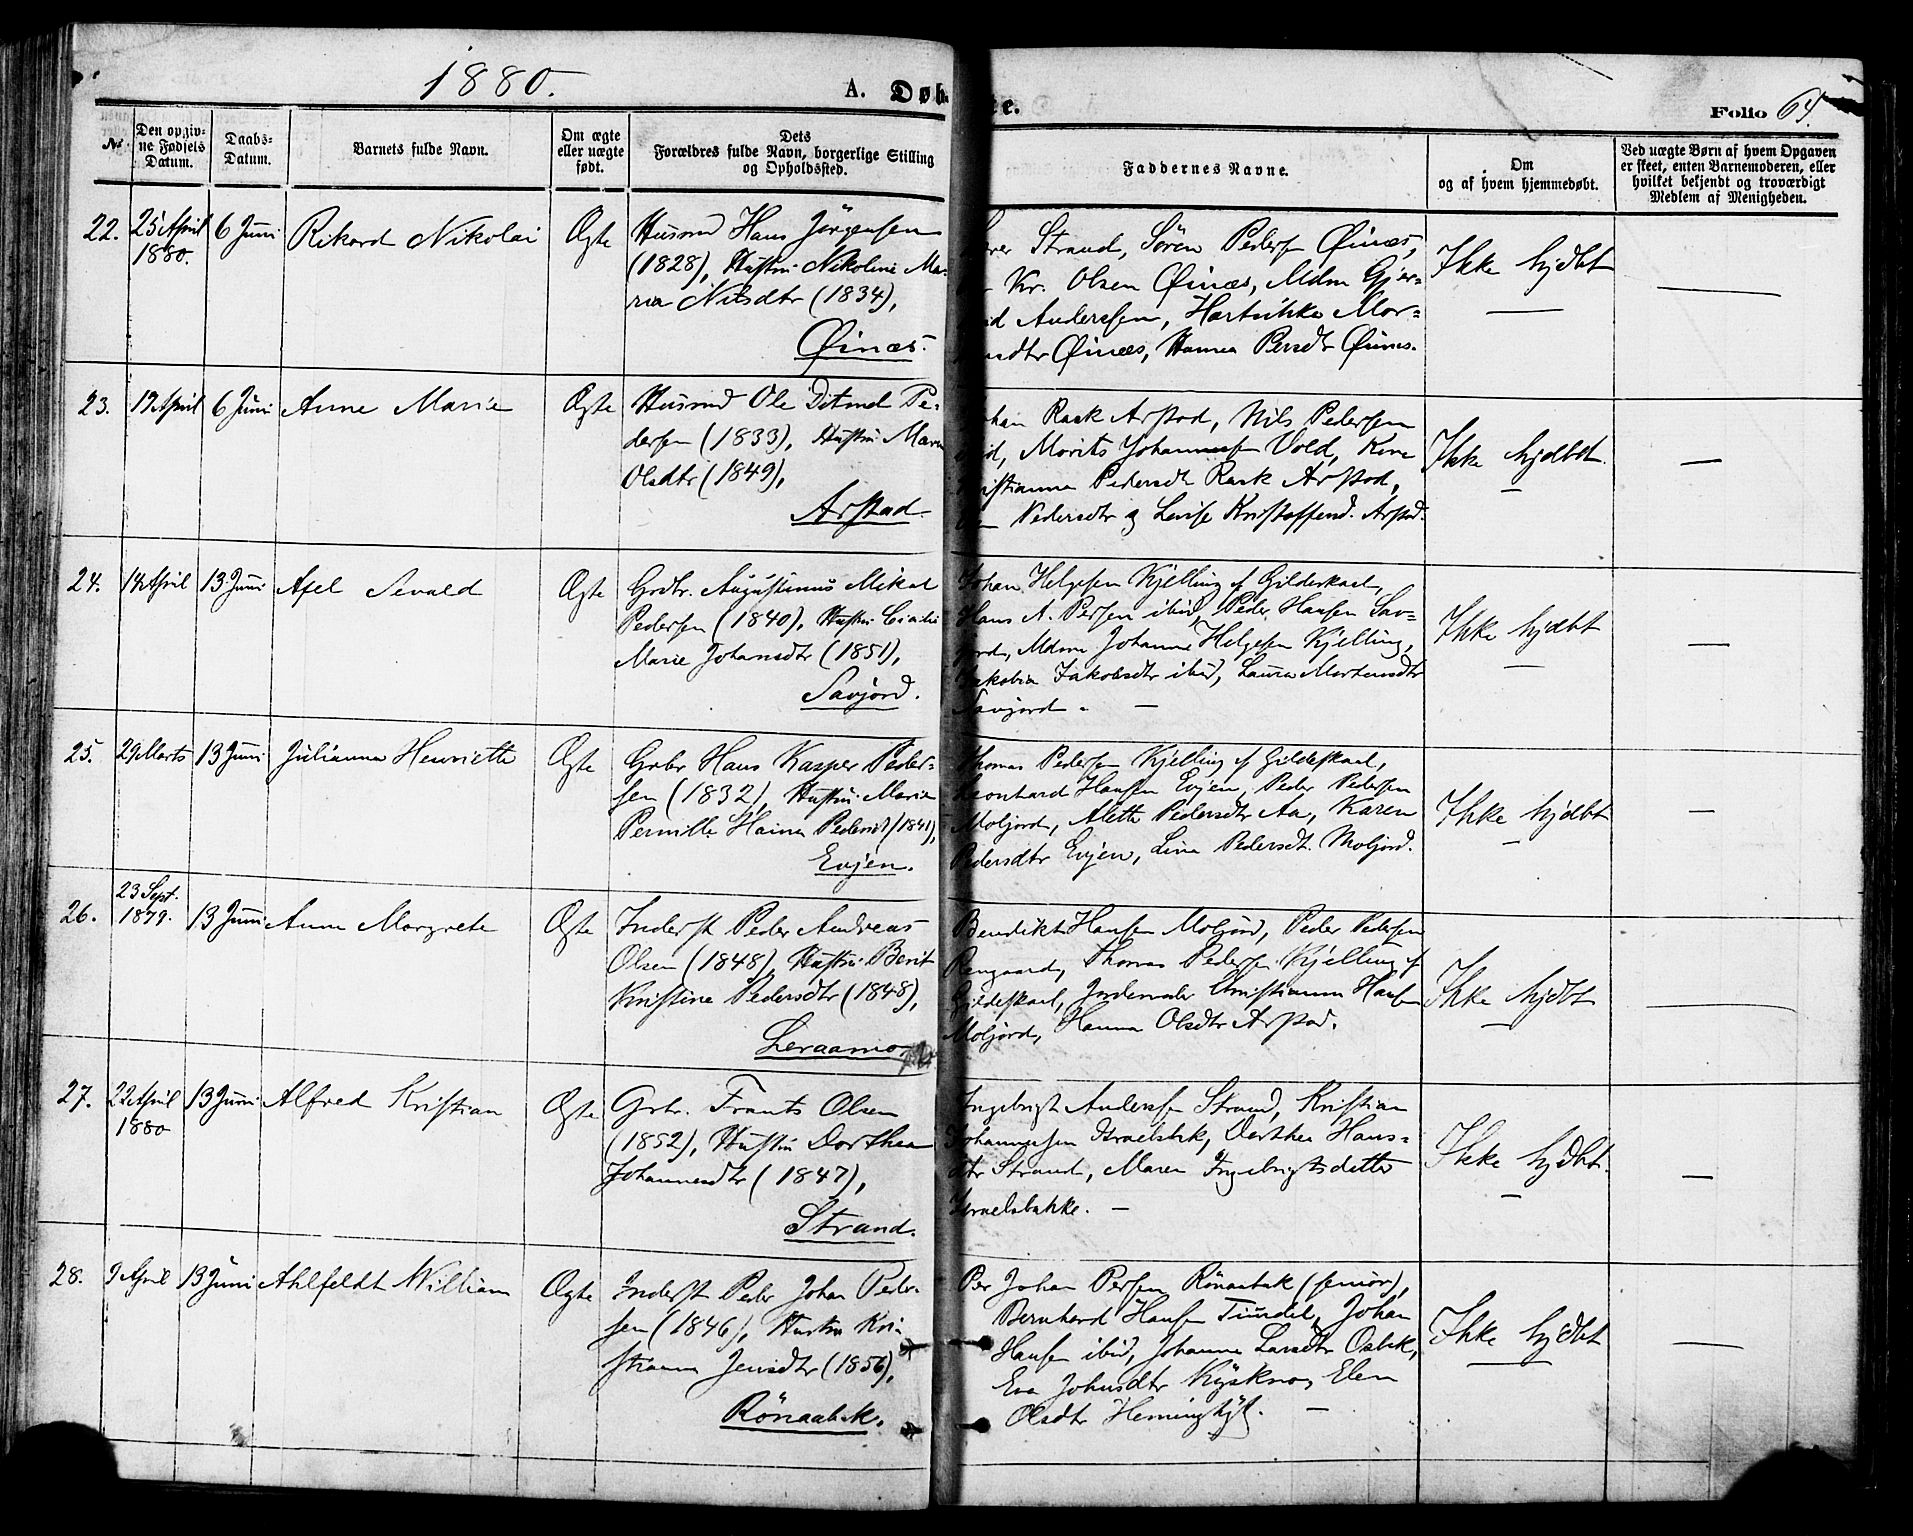 1880.
A. Døb
te.
Folio 64.
No.
Den opgiv-
ne Fødsels
Datum.
Daabs-
Datum.
Barnets fulde Navn.
Om ægte
eller uægte
født.
Dets
Forældres fulde Navn, borgerlige Stilling
og Opholdssted.
Faddernes Navne.
Om
og af hvem hjemmedøbt.
Ved uægte Børn af hvem Opgaven
er skeet, enten Barnemoderen, eller
hvilket bekjendt og troværdigt
Medlem af Menigheden.
22.
25 April
1880.
6 Juni
Rikard Nikolai
Ægte
Husmd Hans Jørgensen
(1828), Hustru Nikoline Ma-
ria Nilsdtr (1834),
Øinæs.
Strand, Søren Pedersen Øinæs,
Kr. Olsen Øinæs, Mdm Gjer-
Anderssen, Hartvikke Mor-
Øinæs, Hanna Persdtr Øinæs.
Ikke hjdbt
23.
19 April
6 Juni
Anne Marie
Ægte
Husmd Ole Ditmel Pe-
dersen (1833), Hustru Maren
Olsdtr (1849),
Arstad.
Rask Arstad, Nils Pedersen
Morits Johannessen Vold,
Pedersdt Rask Arstad,
Pedersdtr og Lovise Kristoffersd. Arstad.
Ikke hjdbt.
24.
14 April
13 Juni
Axel Sevald
Ægte
Grdbr. Augustinus Mikal
Pedersen (1840), Hustru
Marie Johansdtr (1851),
Savjord.
Johan Helgesen Kjelling af Gildeskaal,
Hans A. Persen ibid, Peder Hansen Sav-
jord, Mdme Johanna Helgesen Kjelling,
Jakobia Jakobsdtr ibid, Laura Mortensdtr
Savjord.
Ikke hjdbt
25.
29 Marts
13 Juni
Julianna Henriette
Ægte
Grbr Hans Kasper Peder-
sen (1832), Hustru Maria
Pernille Haina Pedersdt (1841),
Evjen.
Thomas Pedersen Kjelling af Gildeskaal,
Leonhard Hansen Evjen, Peder Pedersen
Moljord, Alette Pedersdtr Aa, Karen
Pedersdtr Evjen, Lina Pedersdt. Moljord.
Ikke hjdbt
26.
23 Sept.
1879.
13 Juni
Anne Margrete
Ægte
Inderst Peder Andreas
Olsen (1848), Hustru Berit
Kristine Pedersdtr (1848),
Leraamo.
Bendikt Hansen Moljord, Peder Pedersen
Thomas Pedersen Kjelling af
Gildeskaal, Jordemoder Christianna Hansen
Moljord, Hanna Olsdtr Arstad.
Ikke hjdbt
27.
22 April
1880
13 Juni
Alfred Kristian
Ægte
Grbr. Frants Olsen
(1852), Hustru Dorthea
Johannesdtr (1847),
Strand.
Ingebrigt Anderssen Strand, Kristian
Johannesen Israelsbk, Dorthea Hans-
dtr Strand, Maren Ingebrigtsdatter
Israelsbakke.
Ikke hjdbt.
28.
9 April
13 Juni
Ahlfeldt William
Ægte
Inderst Peder Johan Peder-
sen (1846), Hustru Kri-
stianna Jensdtr (1856),
Rönaabek.
Per Johan Persen Rönaabek (senior),
Bernhard Hansen Tuvdal, Johan
Hansen ibid, Johanna Larsdtr Osbk,
Eva Johnsdtr Elen
Olsdtr
Ikke hjdbt